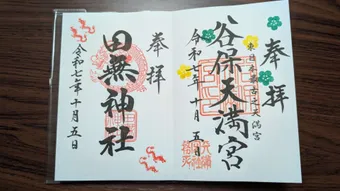 奉拝
東日本最古之天満宮
谷保天満宮
令和七年十月五日
奉拝
田無神社
令和七年十月五日